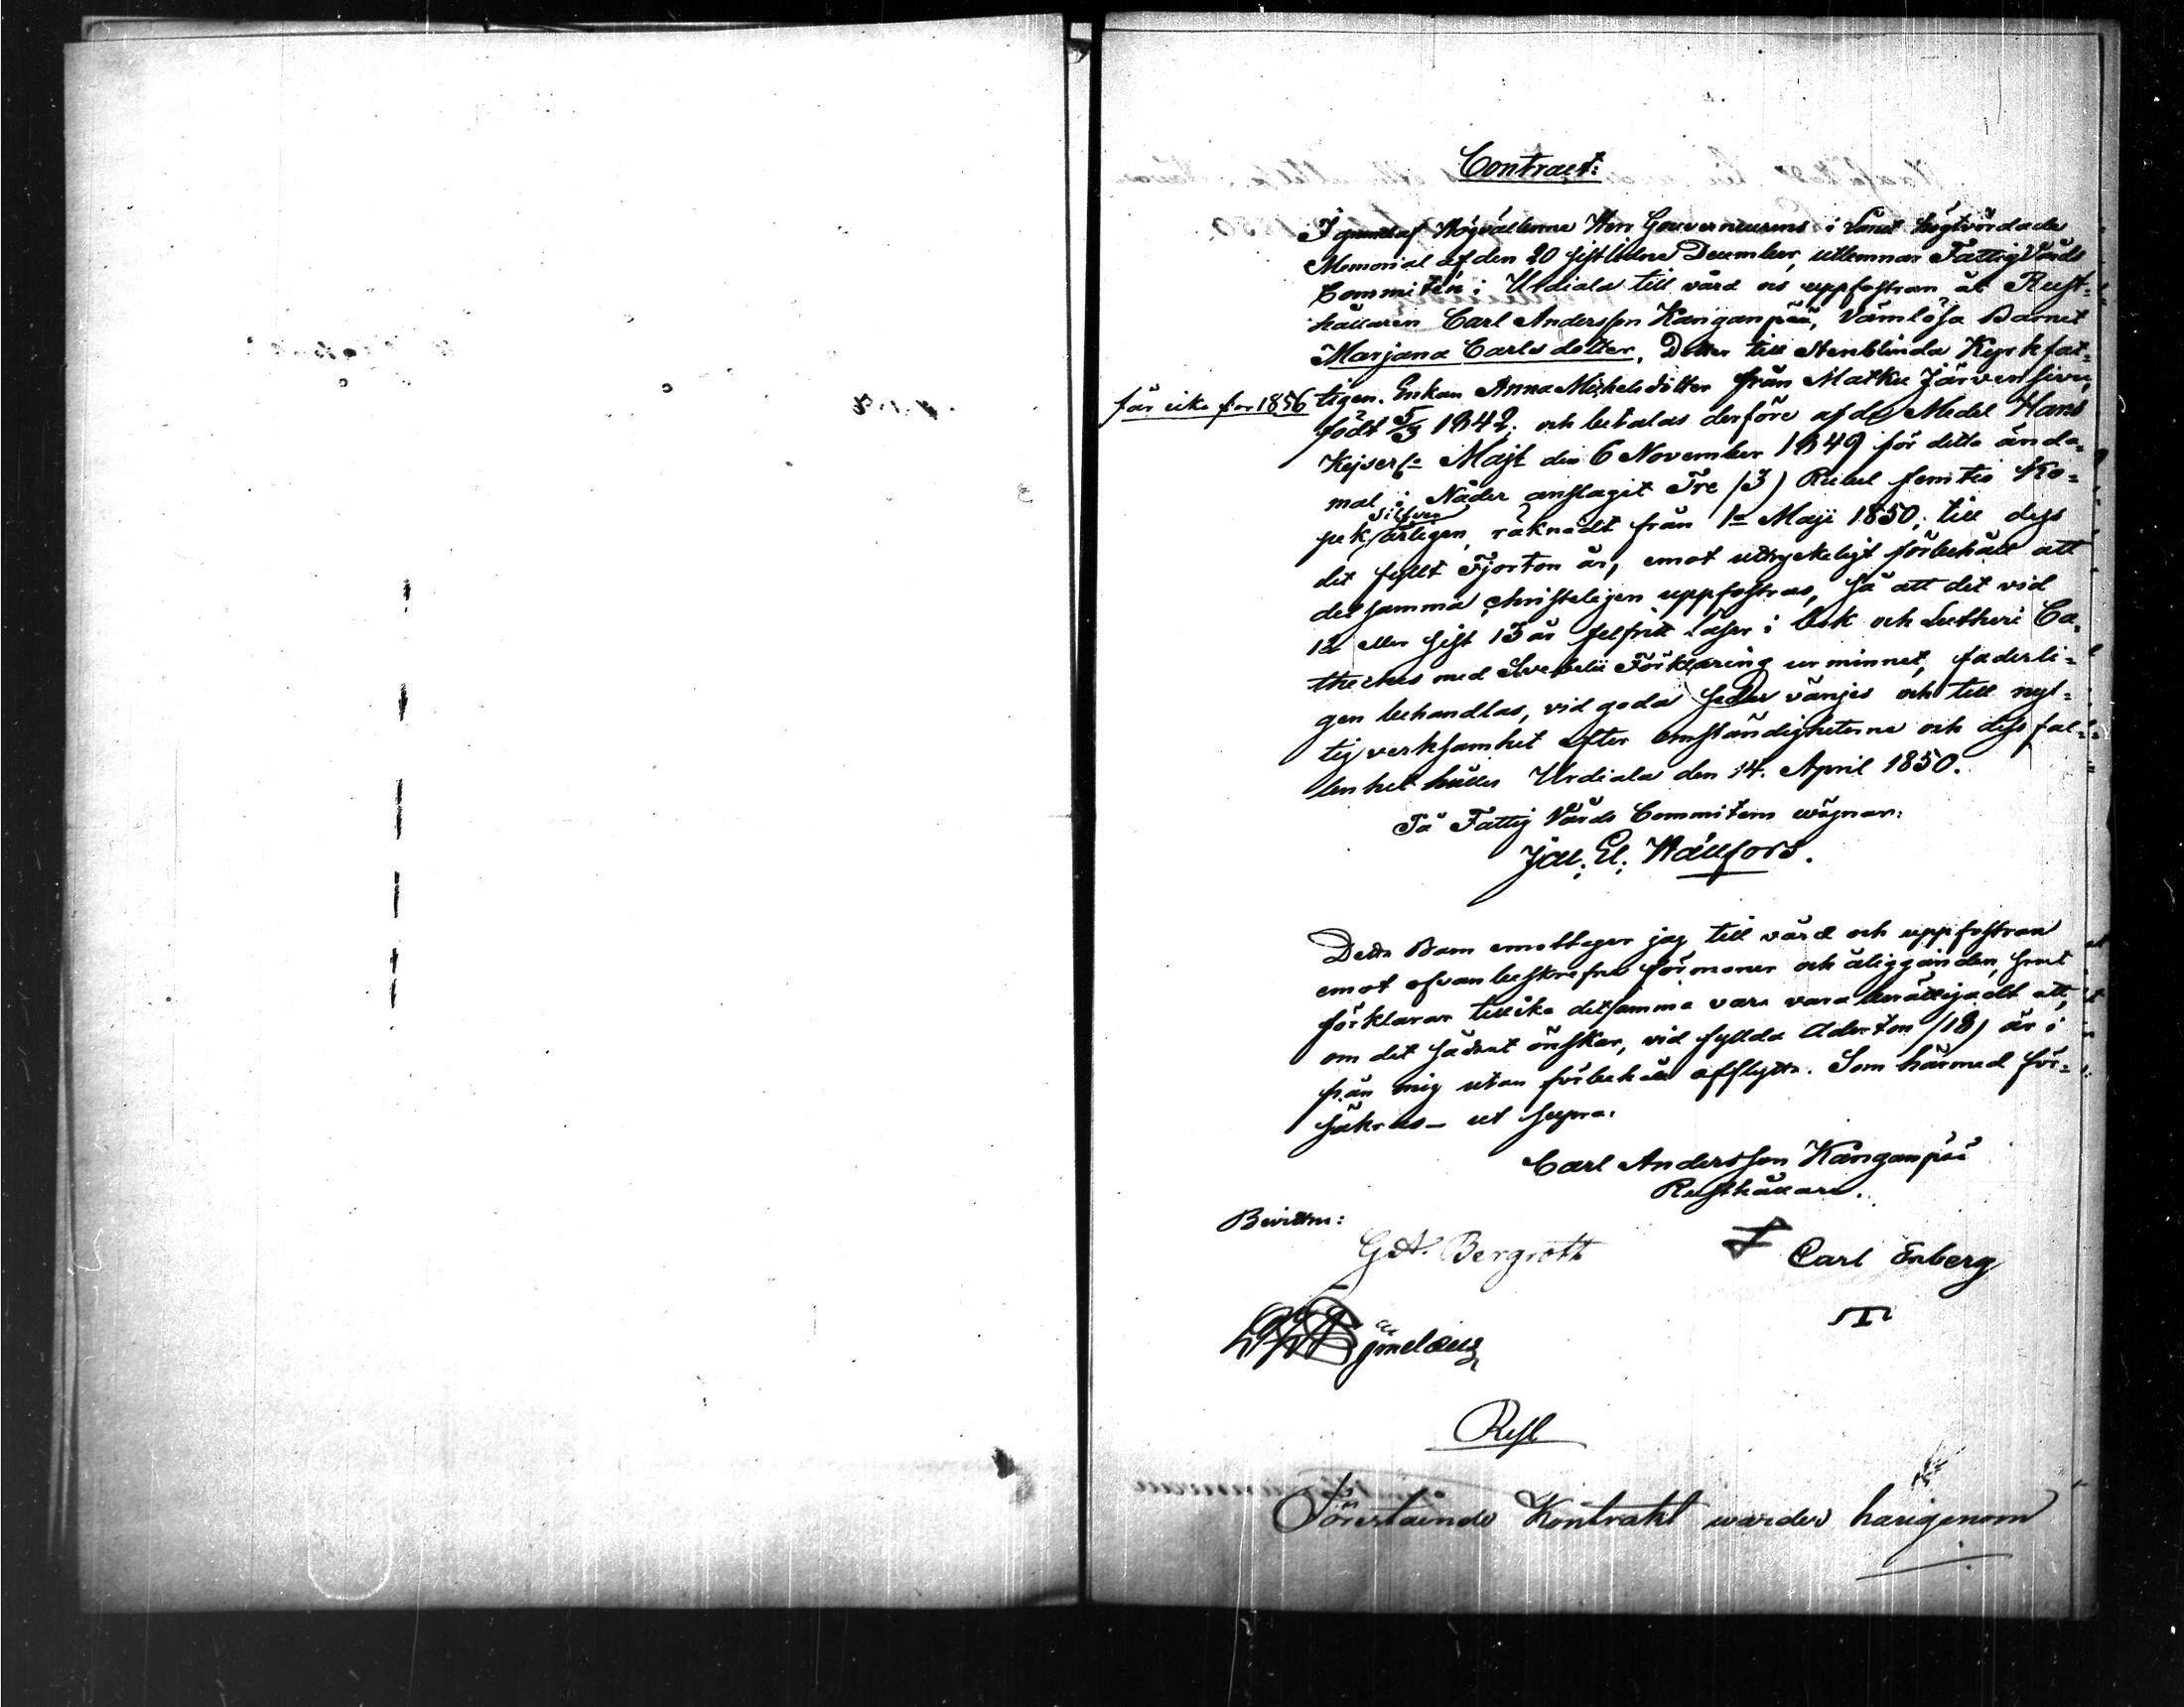 Contract:
I grund af Högvälborne Herr Gouverneurens i Länet högtvördade
Memorial af den 20 sistledne December, utlemnar FattigVårds
Commitén i Urdiala till vård och uppfostran åt Rust-
hållaren Carl Andersson Kanganpää, Värnlösa Barnet
Marjana Carlsdotter, Dotter till Stenblinda Kyrkfat-
tigen, Enkan Anna Michelsdotter från Matku Järvensivu,
får icke för 1856
född 5/3 1842; och betalas derföre af de Medel Hans
Kejserl. Majt den 6 November 1849 för detta ända-
mål i Nåder anslagit Tre /3/ Rubel femtio Ko-
pek silfver årligen, räknadt från 1a Maji 1850, till dess
det fyllt Fjorton år, emot uttryckeligt förbehåll att
detsamma christeligen uppfostras, så att det vid
12 eller sist 13 år felfritt läser i bok och Lutheri Ca-
theches med Svebelii Förklaring ur minnet, faderli-
gen behandlas, vid goda seder vänjes och till nyt-
tig verksamhet efter omständigheterna och dess fal-
lenhet hålles Urdiala den 14. April 1850.
På Fattig Vårds Commiténs vägnar:
Joh. El. Wällfors.
Detta Barn emottager jag till vård och uppfostran
emot ofvanbeskrefne förmoner och åligganden, samt
förklarar tillika detsamma vara vara berättigadt att,
om det sådant önskar, vid fyllda Aderton /18/ år i
från mig utan förbehåll afflytta. Som härmed för-
säkras – ut supra.
Carl Andersson Kanganpää
Rusthållare.
Bevittna:
G. A. Bergroth
Carl Enberg
Resl
Förestående Kontrakt warder härigenom